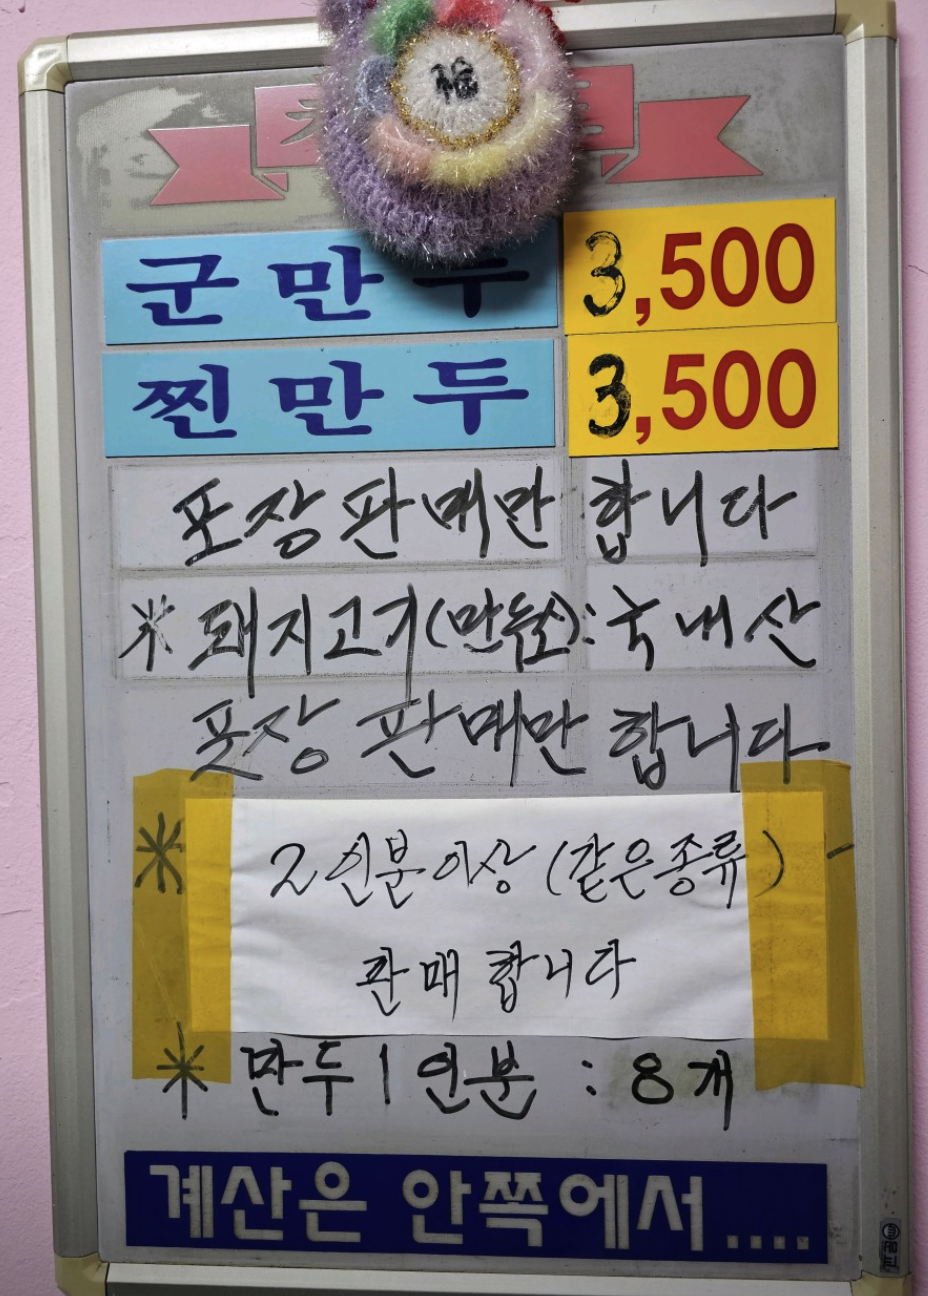 福
군만두 3,500
찐만두 3,500
포장판매만 합니다
※ 돼지고기(만두소):국내산
포장 판매만 합니다
※ 2인분이상 (같은종류)
판매합니다
※ 만두 1인분 : 8개
계산은 안쪽에서....